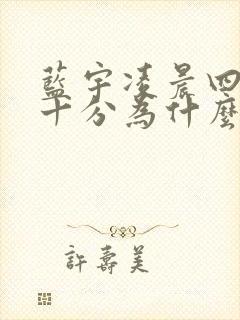 藍宇凌晨四
十分為什麼
許壽美